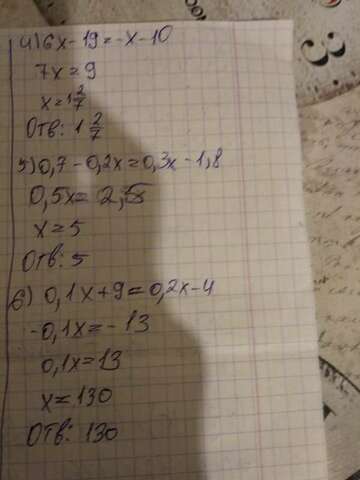 4) 6x - 19 = -x - 10
7x = 9
x = 1 2/7
Отв: 1 2/7
5) 0,7 - 0,2x = 0,3x - 1,8
0,5x = 2,5
x = 5
Отв: 5
6) 0,1x + 9 = 0,2x - 4
-0,1x = -13
0,1x = 13
x = 130
Отв: 130